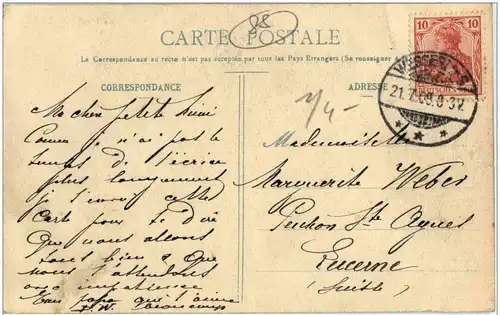 CARTE POSTALE
88
La Correspondance au recto n'est pas acceptée par tous les Pays Étrangers (Se renseigner
CORRESPONDANCE
ADRESSE
10 10
21.7.08.8-3V.
Ma chère petite
Comme je n'ai pas le
temps de t'écrire
plus longuement
je t'envoie cette
Carte pour te dire
que nous allons
tous bien & que
nous t'attendons
avec impatience
Ton papa qui t'aime
beaucoup
Mademoiselle
Marguerite Weber
Pension Ste Agnes
Lucerne
(Suisse)